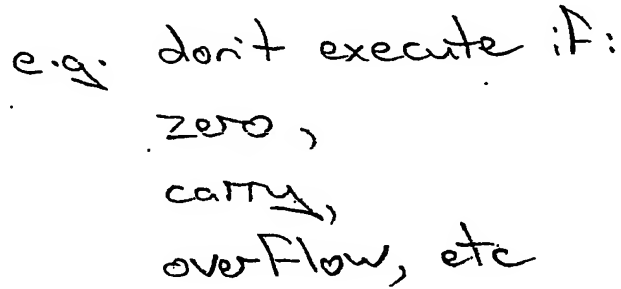 e.g. don't execute if:
zero,
carry,
overflow, etc